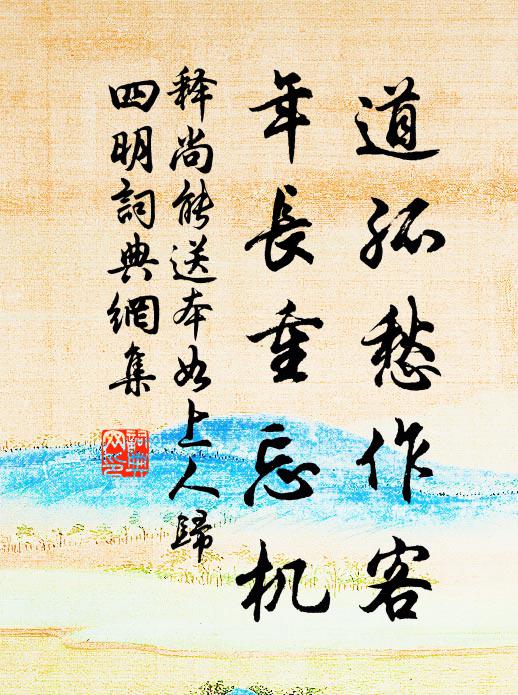 道孤愁作客
年長重忘机
释尚能送本如上人歸
四明詞典網集